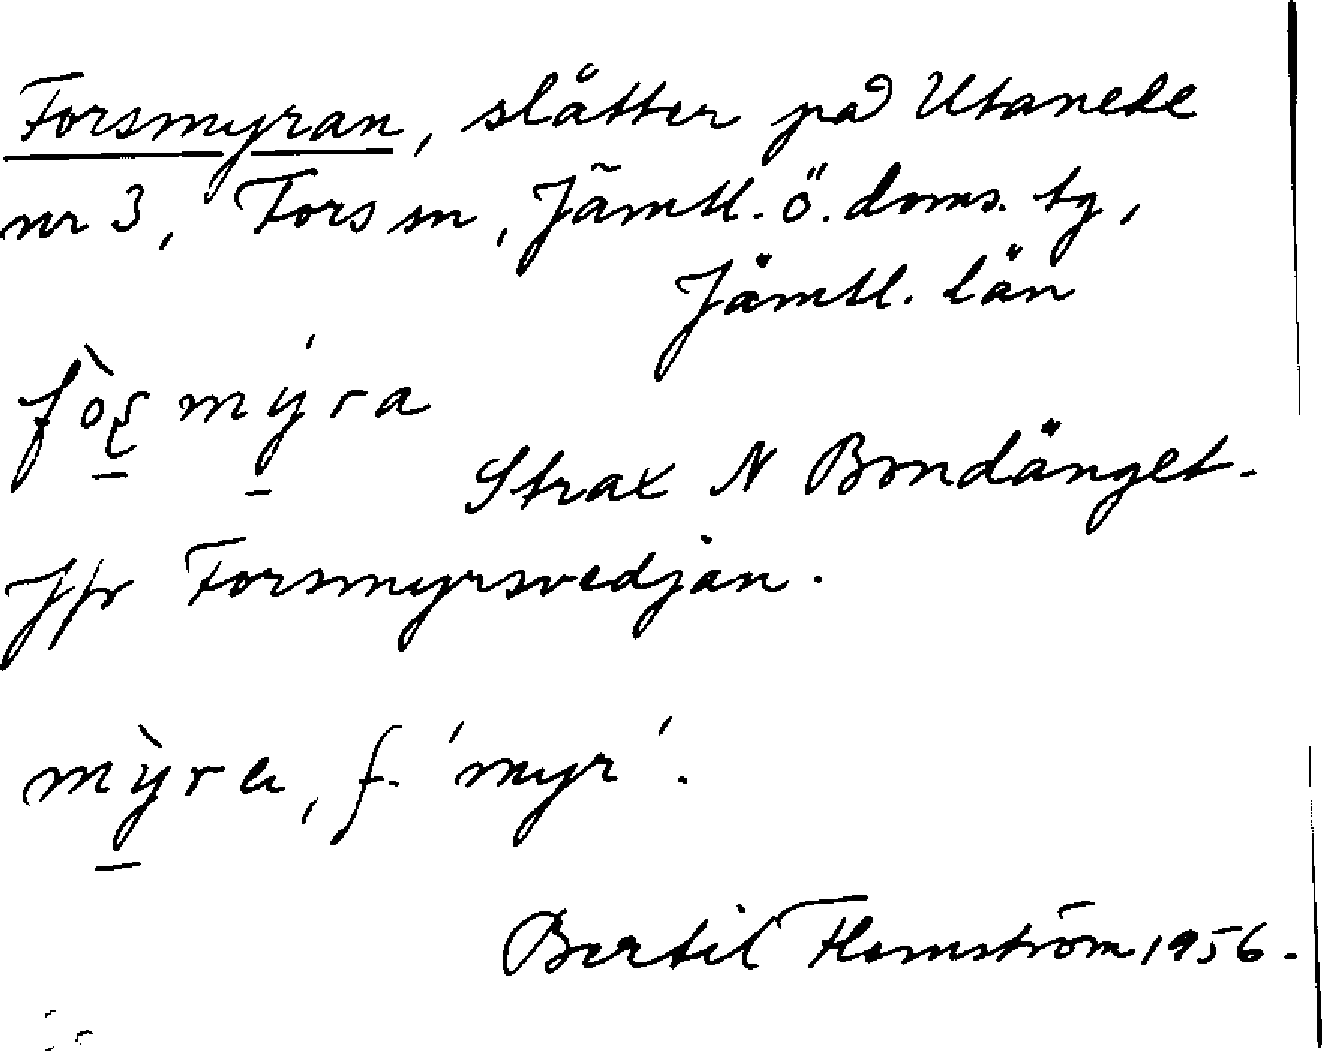 Forsmyran, slåtter på Utanede
nr 3, Fors sn, Jämtl. ö. doms. tg,
Jämtl. län
Strax N Bondänget.
Jfr Forsmyrsvedjan.
mỳra, f. 'myr'.
Bertil Flemström 1956.